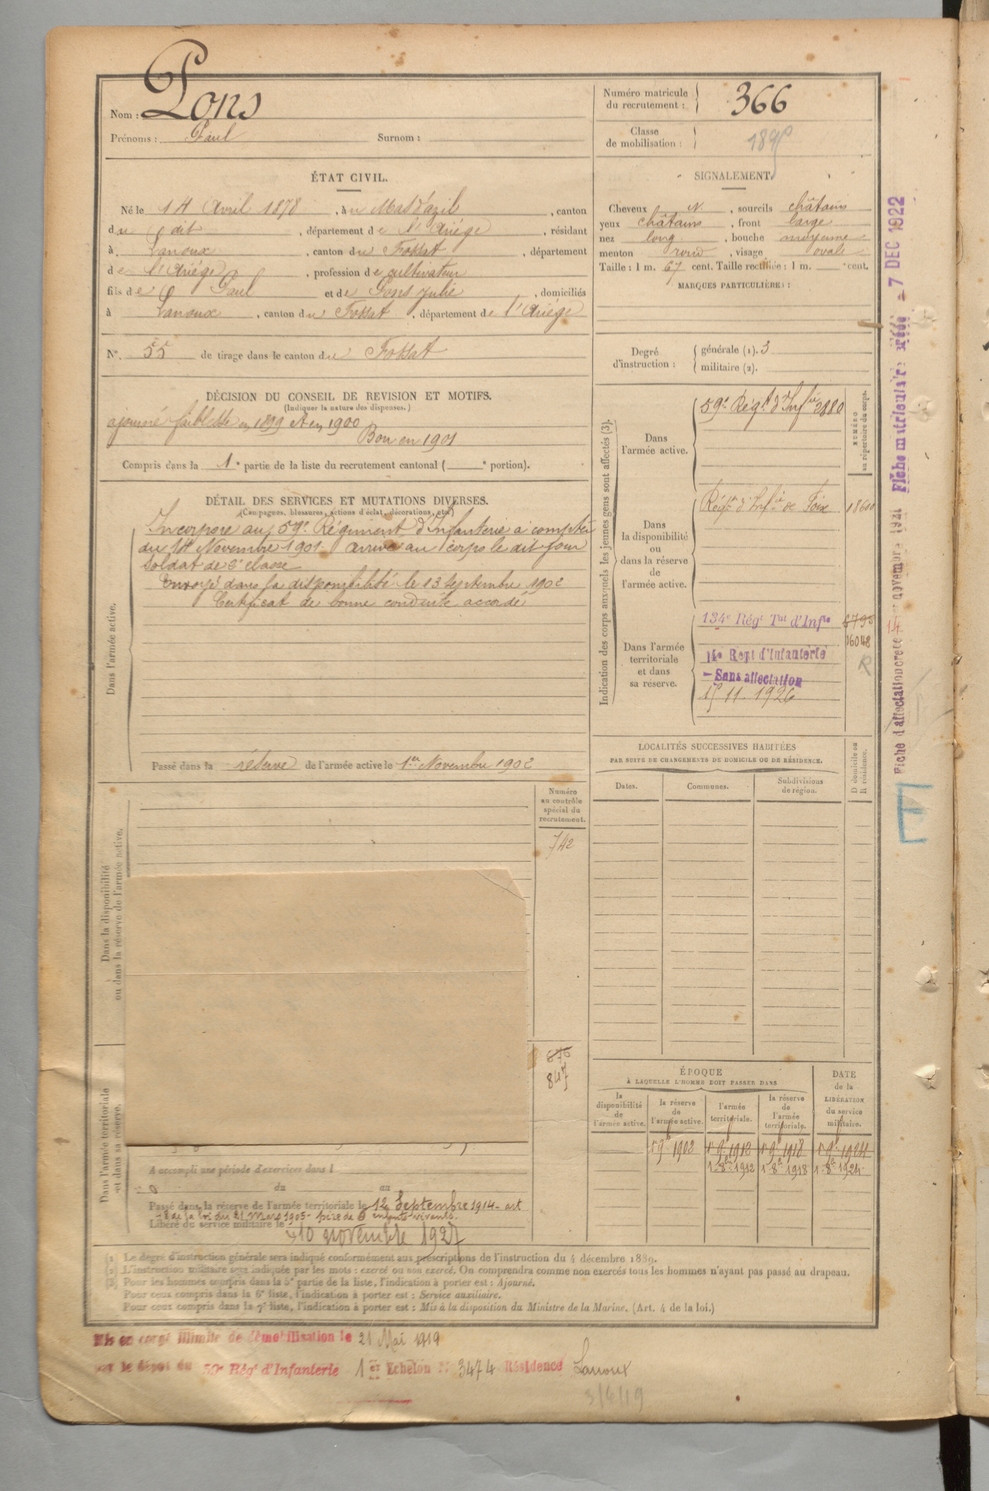 Nom : Pons
Prénoms : Paul Surnom :
Numéro matricule du recrutement : 366
Classe de mobilisation : 1895
ÉTAT CIVIL.
Né le 14 Avril 1878, à u Mas d'azil, canton
du dit, département de l'Ariége, résidant
à Lanoux, canton du Fossat, département
de l'Ariége, profession de cultivateur
fils de Paul et de Pons Julie, domiciliés
à Lanoux, canton du Fossat, département de l'Ariége
N°. 55 de tirage dans le canton du Fossat
SIGNALEMENT.
Cheveux N, sourcils châtains
yeux châtains, front large
nez long, bouche moyenne
menton rond, visage ovale
Taille : 1 m. 67 cent. Taille rectifiée : 1 m. cent.
MARQUES PARTICULIÈRES :
Degré d'instruction : générale (1). 3
militaire (2).
DÉCISION DU CONSEIL DE REVISION ET MOTIFS.
(Indiquer la nature des dispenses.)
ajourné faiblesse en 1899 et en 1900
Bon en 1901
Compris dans la 1e partie de la liste du recrutement cantonal ( e portion).
DÉTAIL DES SERVICES ET MUTATIONS DIVERSES.
(Campagnes, blessures, actions d'éclat, décorations, etc.)
Dans l'armée active.
Incorporé au 59e Régiment d'Infanterie à compter
du Novembre 1901. arrivé au corps le dit jour
soldat de 2e classe
Envoyé dans la disponibilité le 13 Septembre 1902
Certificat de bonne conduite accordé
Passé dans la réserve de l'armée active le 1er Novembre 1902
Indication des corps auxquels les jeunes gens sont affectés (3).
NUMÉRO au répertoire du corps.
Dans l'armée active. 59e Régt d'Infie 2880
Dans la disponibilité ou dans la réserve de l'armée active. Régt d'Infie de Foix 11600
Dans l'armée territoriale et dans sa réserve. 134e Régt Tal d'Infie
16048
14e Regt d'Infanterie
R
Sans affectation
15 11 1926
LOCALITÉS SUCCESSIVES HABITÉES
PAR SUITE DE CHANGEMENTS DE DOMICILE OU DE RÉSIDENCE.
Dates. Communes. Subdivisions de région. D domicile ou R résidence.
Numéro au contrôle spécial du recrutement.
742
Dans la disponibilité ou dans la réserve de l'armée active.
Dans l'armée territoriale et dans sa réserve.
676
847
ÉPOQUE
À LAQUELLE L'HOMME DOIT PASSER DANS
DATE de la LIBÉRATION du service militaire.
la disponibilité de l'armée active. la réserve de l'armée active. l'armée territoriale. la réserve de l'armée territoriale.
A accompli une période d'exercices dans l
du au
Passé dans la réserve de l'armée territoriale le 12 Septembre 1914 - art
de la loi du 21 Mars 1905 - père de enfants vivants.
Libéré du service militaire le 10 novembre 1927
(1) Le degré d'instruction générale sera indiqué conformément aux prescriptions de l'instruction du 4 décembre 1889.
(2) L'instruction militaire sera indiquée par les mots : exercé ou non exercé. On comprendra comme non exercés tous les hommes n'ayant pas passé au drapeau.
(3) Pour les hommes compris dans la 5e partie de la liste, l'indication à porter est : Ajourné.
Pour ceux compris dans la 6e liste, l'indication à porter est : Service auxiliaire.
Pour ceux compris dans la 7e liste, l'indication à porter est : Mis à la disposition du Ministre de la Marine. (Art. 4 de la loi.)
Mis en congé illimité de démobilisation le 21 Mai 1919
par le dépôt du 59e Régt d'Infanterie 1er Echelon N° 3474 Résidence Lanoux
3/6/19
Fiche d'affectation créée novembre 1921 Fiche matriculaire créée - 7 DEC 1922